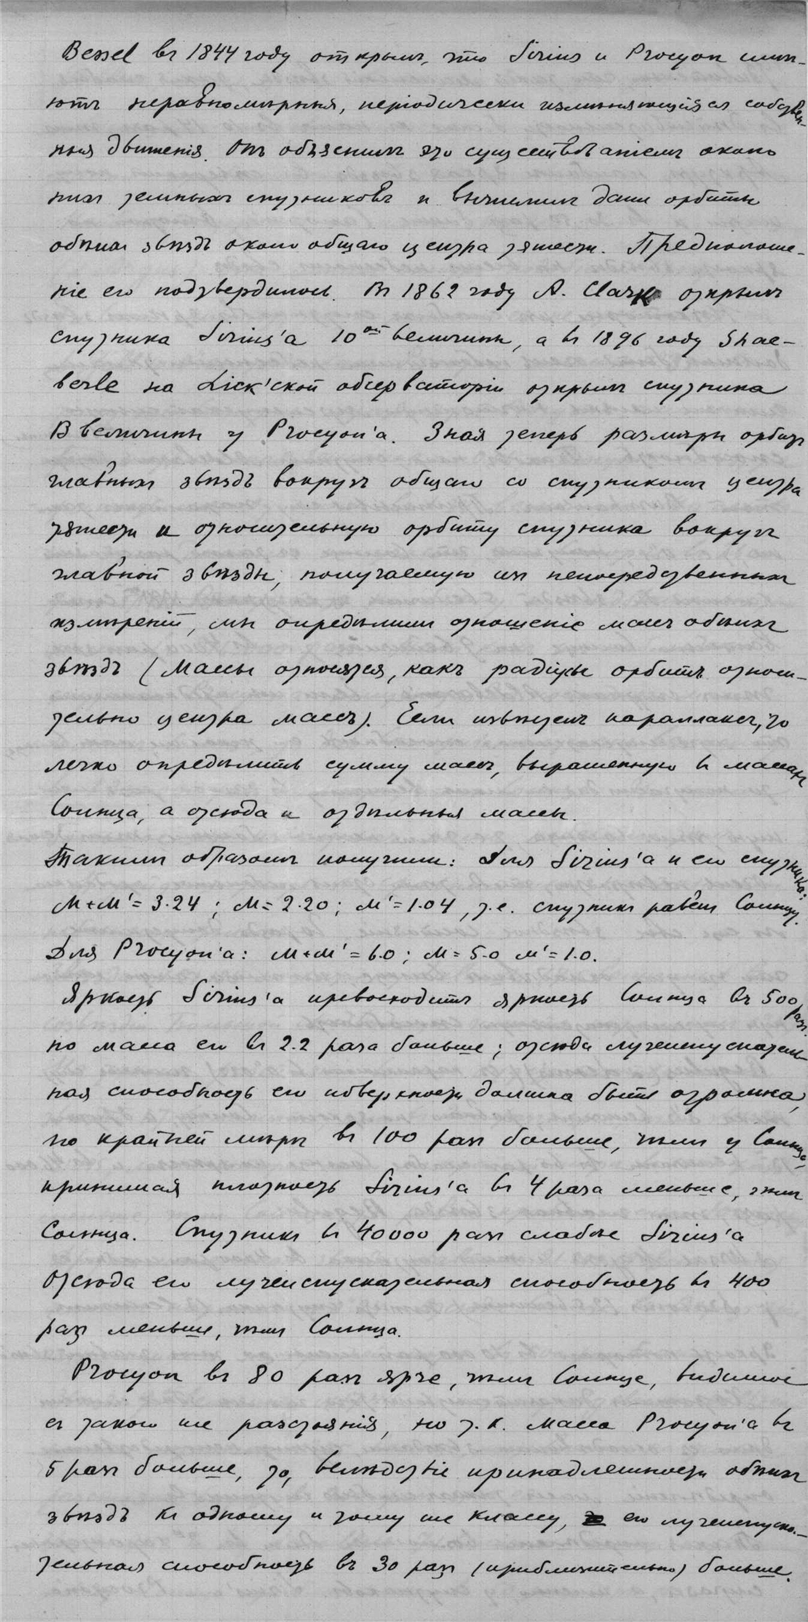 Bessel въ 1844 году открылъ, что Sirius и Procyon имѣ-
ютъ неравномѣрныя, періодически измѣняющіяся собствен-
ныя движенія. Онъ объяснилъ это существованіемъ около
нихъ темныхъ спутниковъ и вычислилъ даже орбиты
обѣихъ звѣздъ около общаго центра тяжести. Предположе-
ніе его подтвердилось. Въ 1862 году A. Clark открылъ
спутника Sirius'а 10ой величины, а въ 1896 году Shae-
berle на Lick'ской обсерваторіи открылъ спутника
13 величины у Procyon'а. Зная теперь размѣры орбитъ
главныхъ звѣздъ вокругъ общаго со спутникомъ центра
тяжести и относительную орбиту спутника вокругъ
главной звѣзды, получаемую изъ непосредственныхъ
измѣреній, мы опредѣлимъ отношеніе массъ обѣихъ
звѣздъ (Массы относятся, какъ радіусы орбитъ относи-
тельно центра массъ). Если извѣстенъ параллаксъ, то
легко опредѣлить сумму массъ, выраженную въ массахъ
Солнца, а отсюда и отдѣльныя массы.
Такимъ образомъ получили: Для Sirius'а и его спутника:
M+M' = 3.24 ; M = 2.20 ; M' = 1.04 , т.е. спутникъ равенъ Солнцу.
Для Procyon'а: M+M' = 6.0 ; M = 5.0 M' = 1.0.
Яркость Sirius'а превосходитъ яркость Солнца въ 500 разъ.
но масса его въ 2.2 раза больше; отсюда лучеиспускатель-
ная способность его поверхности должна быть огромна,
по крайней мѣрѣ въ 100 разъ больше, чѣмъ у Солнца,
принимая плотность Sirius'а въ 4 раза меньше, чѣмъ
Солнца. Спутникъ въ 40000 разъ слабѣе Sirius'а
Отсюда его лучеиспускательная способность въ 400
разъ меньше, чѣмъ Солнца.
Procyon въ 80 разъ ярче, чѣмъ Солнце, видимое
съ такого же разстоянія, но т.к. масса Procyon'а въ
5 разъ больше, то, вслѣдствіе принадлежности обѣихъ
звѣздъ къ одному и тому же классу, его лучеиспуска-
тельная способность въ 30 разъ (приблизительно) больше.